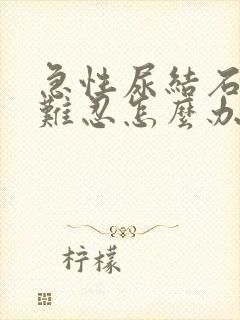 急性尿結石
難忍怎麼办
柠檬